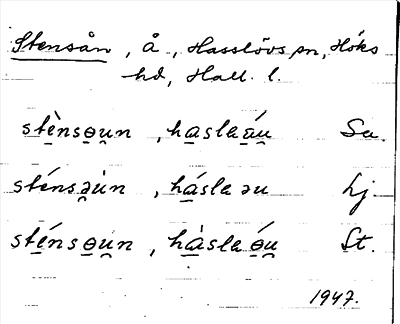 Stensån, å, Hasslövs sn, Höks
hd, Hall. l.
stè̱nsɵ̱u̯n, ha̱slaá̱u̯ Sa.
sténsə̯ùn, há̱slaəu Lj.
sté̱nsɵ̱u̯n, hà̱slaɵ̱́u̯ St.
1947.